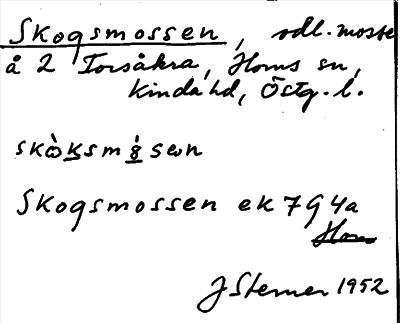 Skogsmossen, odl. mosse
å 2 Torsåkra, Horns sn,
Kinda hd, Östg. l.
Skogsmossen ek 7G4a
Horn
J Sterner 1952